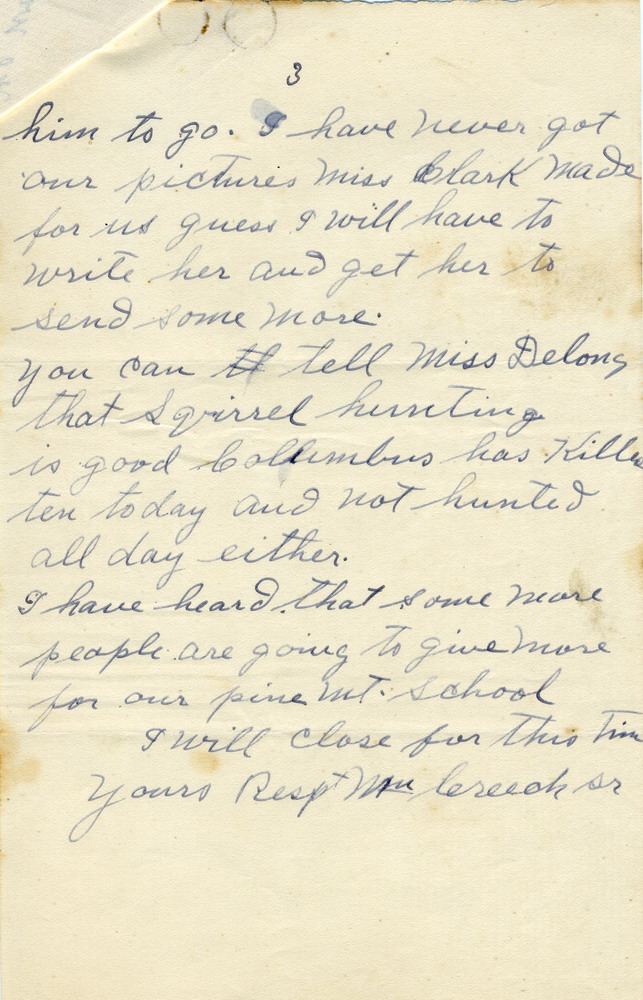 3
him to go. I have never got
our pictures Miss Clark made
for us guess I will have to
write her and get her to
send some more.
you can tell Miss Delong
that Squirrel hunting
is good Collumbus has Kille
ten today and not hunted
all day either.
I have heard that some more
people are going to give more
for our pine Mt. School
I will close for this Tim
Yours Respt Wm Creech sr